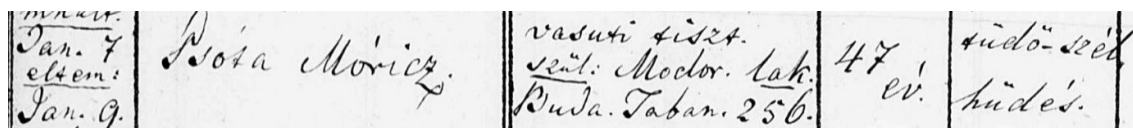 mhalt.
Jan. 7
eltem:
Jan. 9.
Psóta Móricz.
vasuti tiszt.
szül: Modor. lak.
Buda. Taban. 256.
47
év.
tüdő-szél
hüdés.